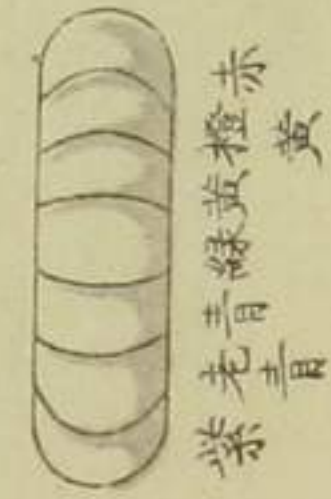 赤
橙黄
黄
綠
青
老青
紫